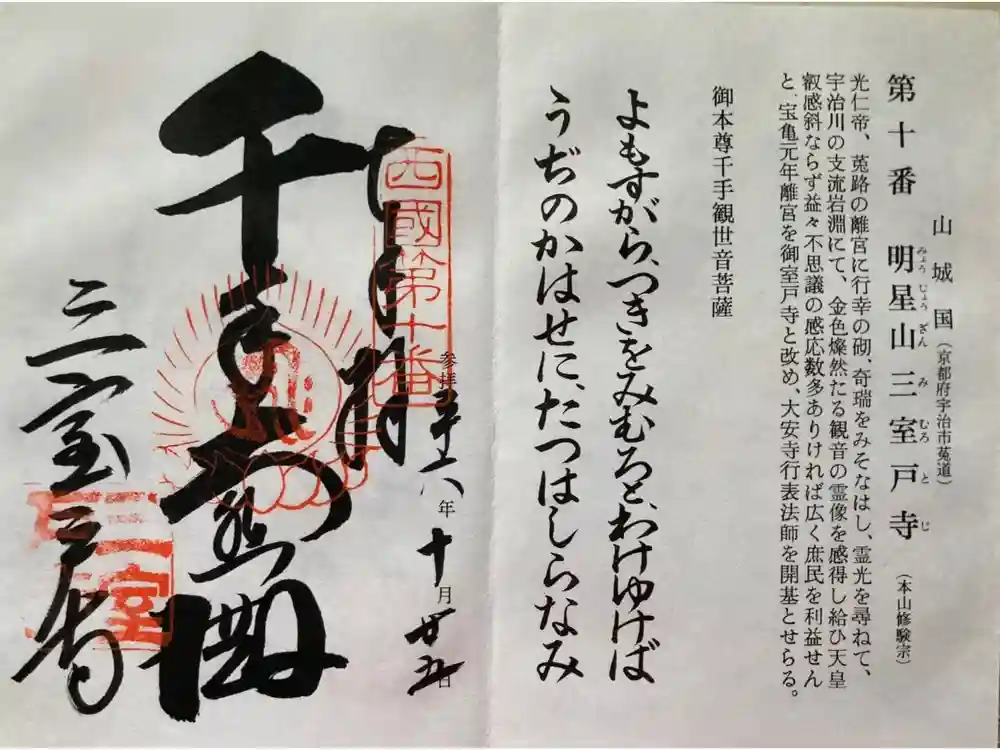 山城国（京都府宇治市菟道）
第十番　明星山三室戸寺（本山修験宗）
みょうじょうざんみむろとじ
光仁帝、菟路の離宮に行幸の砌、奇瑞をみそなはし、霊光を尋ねて、
宇治川の支流岩淵にて、金色燦然たる観音の霊像を感得し給ひ天皇
叡感斜ならず益々不思議の感応数多ありければ広く庶民を利益せん
と、宝亀元年離宮を御室戸寺と改め、大安寺行表法師を開基とせらる。
御本尊千手観世音菩薩
よもすがら、つきをみむろと、わけゆけば
うぢのかはせに、たつはしらなみ
西國第十番
参拝 六年十月廿五日
千手
三室戸寺
三室